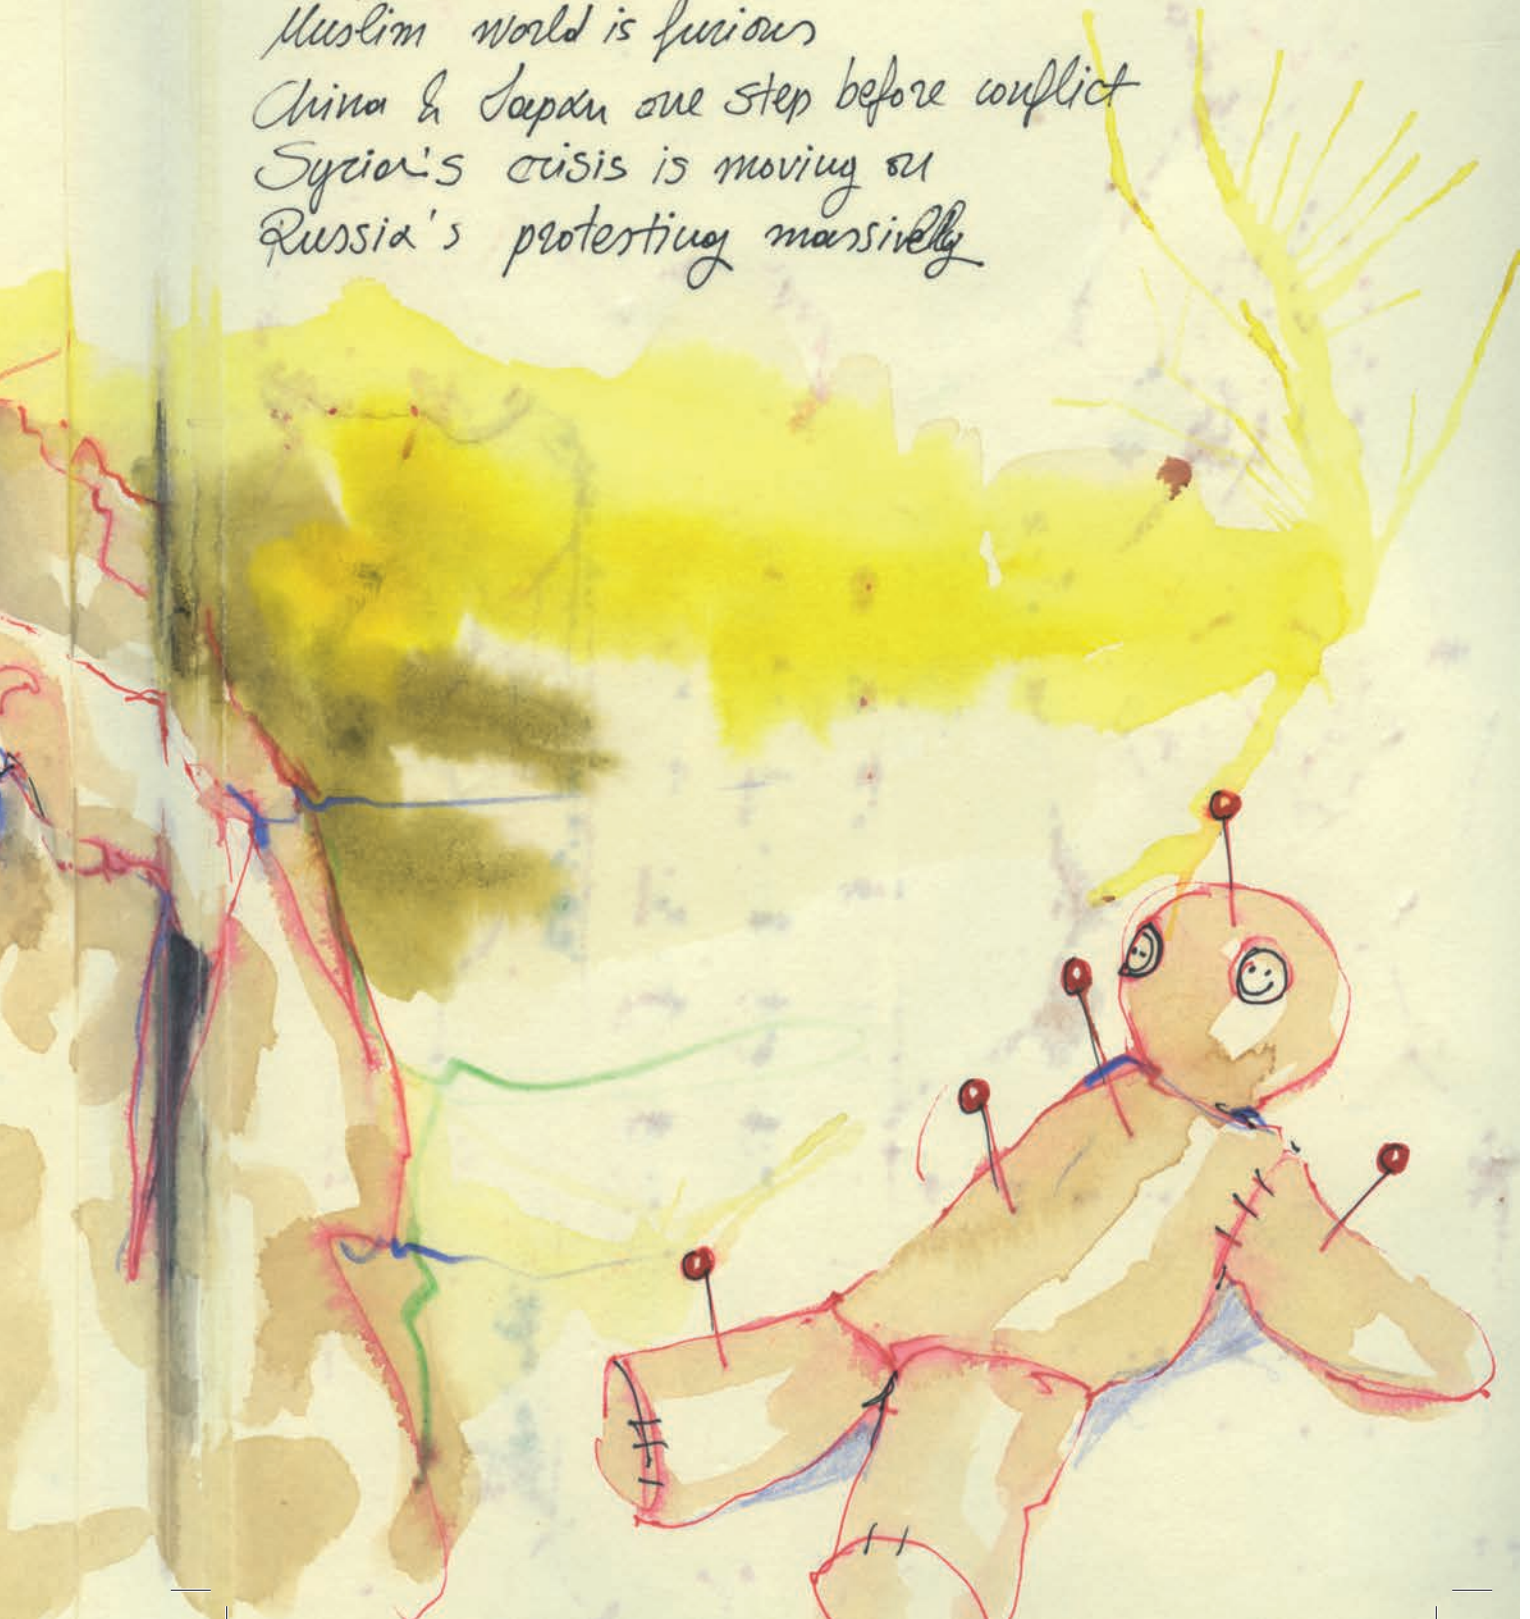 Muslim world is furious
China & Japan one step before conflict
Syria's crisis is moving on
Russia's protesting massivelly